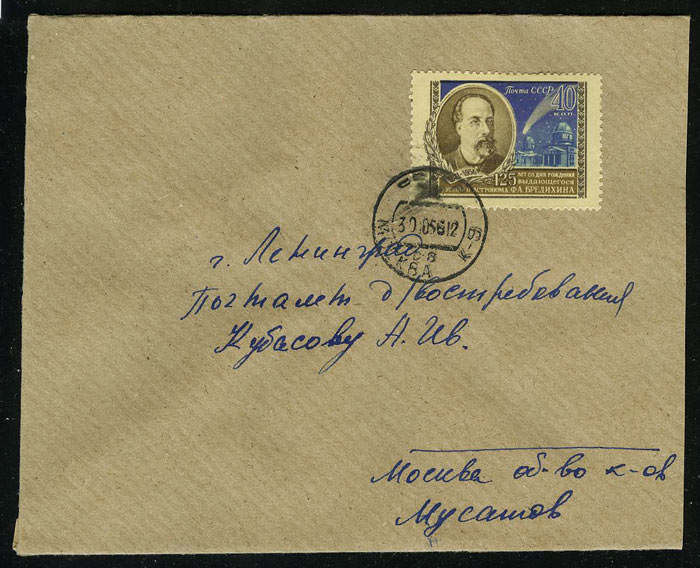 Почта СССР
40
коп.
125 лет со дня рождения
выдающегося
астронома Ф.А. Бредихина
30 1056 12
МОСКВА К-9
г. Ленинград
Почтамт д/востребования
Кубасову А. Ив.
Москва об-во к-ов
Мусатов